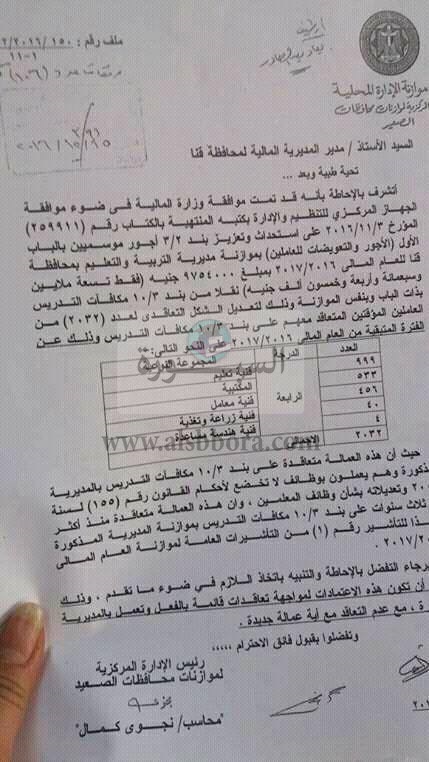 ملف رقم : ١٥٠ /٢٠١٦/٢
١١-١
مرفقات عدد (١٠٦)
أرشيف
موازنة الإدارة المحلية
المركزية لموازنات محافظات
الصعيد
٢٠١٦/١٥/١٥
السيد الأستاذ / مدير المديرية المالية لمحافظة قنا
تحية طيبة وبعد ...
أتشرف بالإحاطة بأنه قد تمت موافقة وزارة المالية فى ضوء موافقة
الجهاز المركزي للتنظيم والإدارة بكتبه المنتهية بالكتاب رقم (٢٥٩٩١١)
المؤرخ ٢٠١٦/١١/٣ على استحداث وتعزيز بند ٣/٢ أجور موسميين بالباب
الأول (الأجور والتعويضات للعاملين) بموازنة مديرية التربية والتعليم بمحافظة
قنا للعام المالى ٢٠١٧/٢٠١٦ بمبلغ ٩٧٥٤٠٠٠ جنيه (فقط تسعة ملايين
وسبعمائة وأربعة وخمسون ألف جنيه) نقلا من بند ١٠/٣ مكافآت التدريس
بذات الباب وبنفس الموازنة وذلك لتعديل الشكل التعاقدى لعدد (٢٠٣٢) من
العاملين المؤقتين المتعاقد معهم على بند ١٠/٣ مكافآت التدريس وذلك عن
الفترة المتبقية من العام المالى ٢٠١٧/٢٠١٦ على النحو التالى:-
المجموعة النوعية الدرجة العدد
فنية تعليم ٩٩٩
المكتبية ٥٣٣
فنية معامل الرابعة ٤٥٦
فنية زراعة وتغذية ٤٠
فنية هندسة مساعدة ٤
الاجمالى ٢٠٣٢
السبورة
www.alsbbora.com
حيث أن هذه العمالة متعاقدة على بند ١٠/٣ مكافآت التدريس بالمديرية
المذكورة وهم يعملون بوظائف لا تخضع لأحكام القانون رقم (١٥٥) لسنة
وتعديلاته بشأن وظائف المعلمين ، وان هذه العمالة متعاقدة منذ أكثر
ثلاث سنوات على بند ١٠/٣ مكافآت التدريس بموازنة المديرية المذكورة
للتأشير رقم (١) من التأشيرات العامة لموازنة العام المالى
٢٠١٧/
برجاء التفضل بالإحاطة والتنبيه باتخاذ اللازم في ضوء ما تقدم ، وذلك
أن تكون هذه الاعتمادات لمواجهة تعاقدات قائمة بالفعل وتعمل بالمديرية
، مع عدم التعاقد مع أية عمالة جديدة .
وتفضلوا بقبول فائق الاحترام ،،،،،
رئيس الإدارة المركزية
لموازنات محافظات الصعيد
"محاسب/ نجوى كمال"